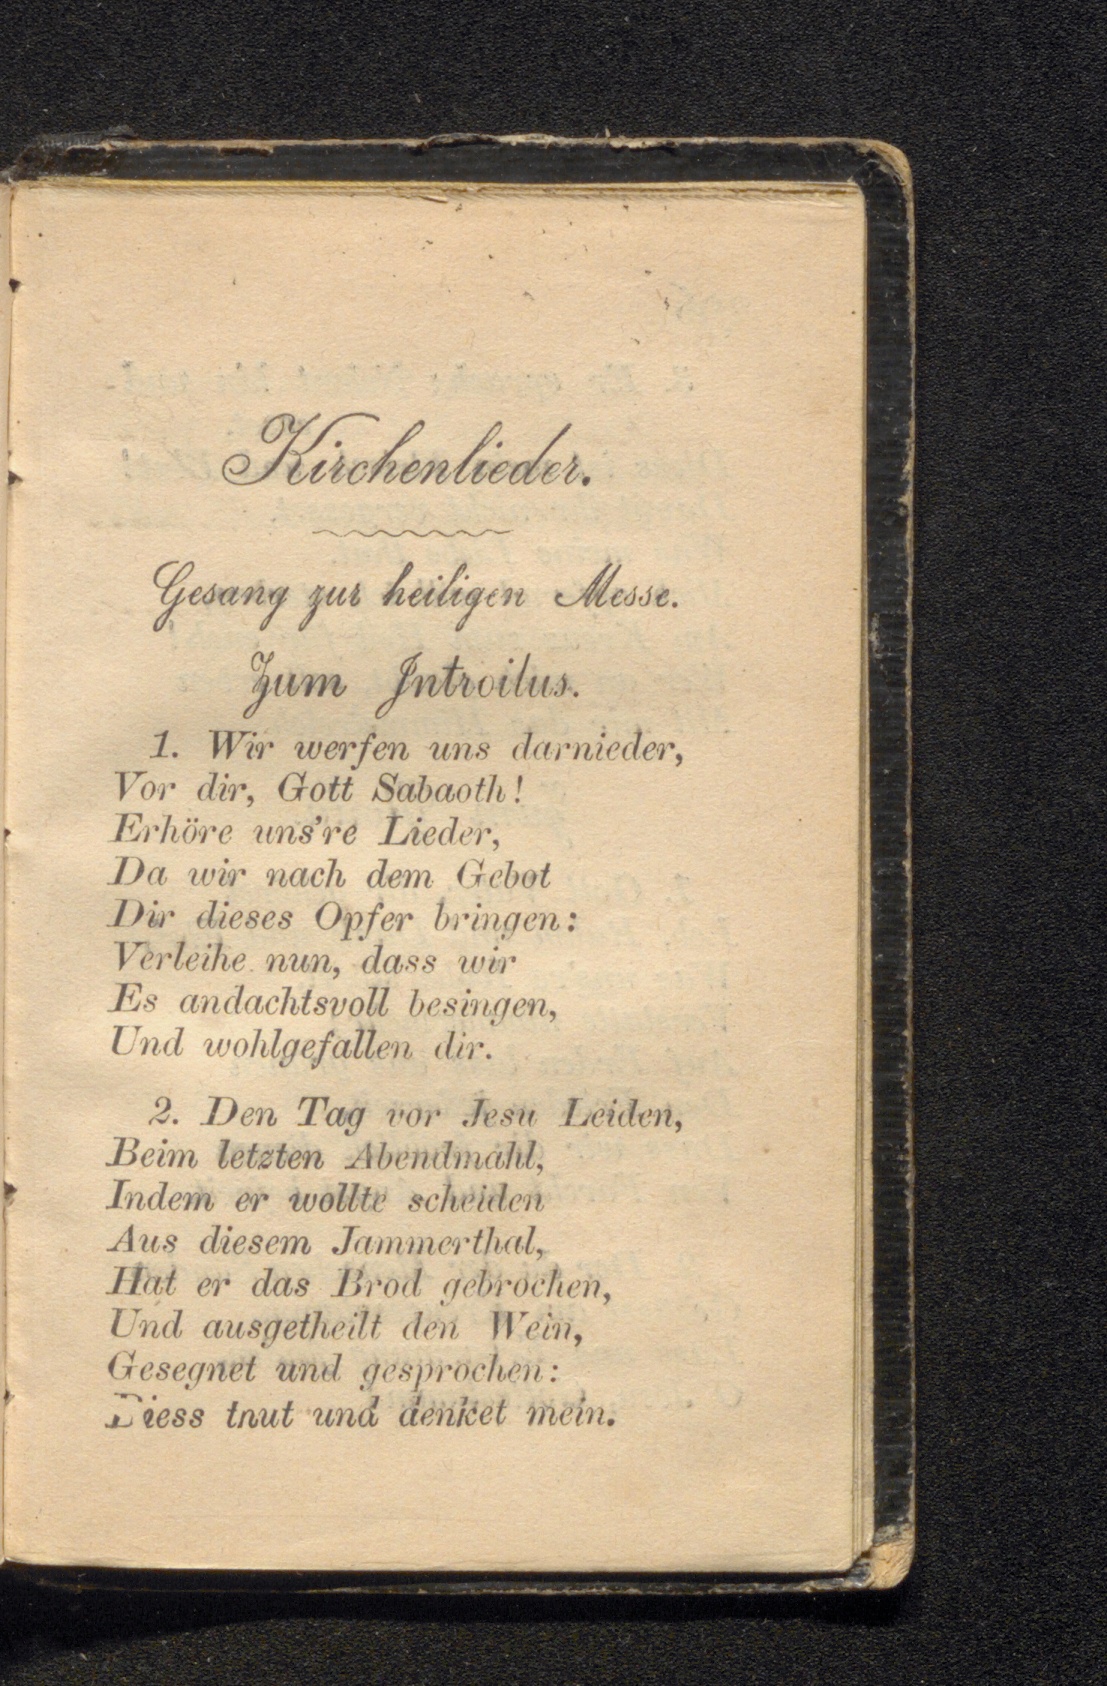 Kirchenlieder.
Gesang zur heiligen Messe.
Zum Introilus.
1. Wir werfen uns darnieder,
Vor dir, Gott Sabaoth!
Erhöre uns're Lieder,
Da wir nach dem Gebot
Dir dieses Opfer bringen:
Verleihe nun, dass wir
Es andachtsvoll besingen,
Und wohlgefallen dir.
2. Den Tag vor Jesu Leiden,
Beim letzten Abendmahl,
Indem er wollte scheiden
Aus diesem Jammerthal,
Hat er das Brod gebrochen,
Und ausgetheilt den Wein,
Gesegnet und gesprochen:
Diess tnut und denket mein.